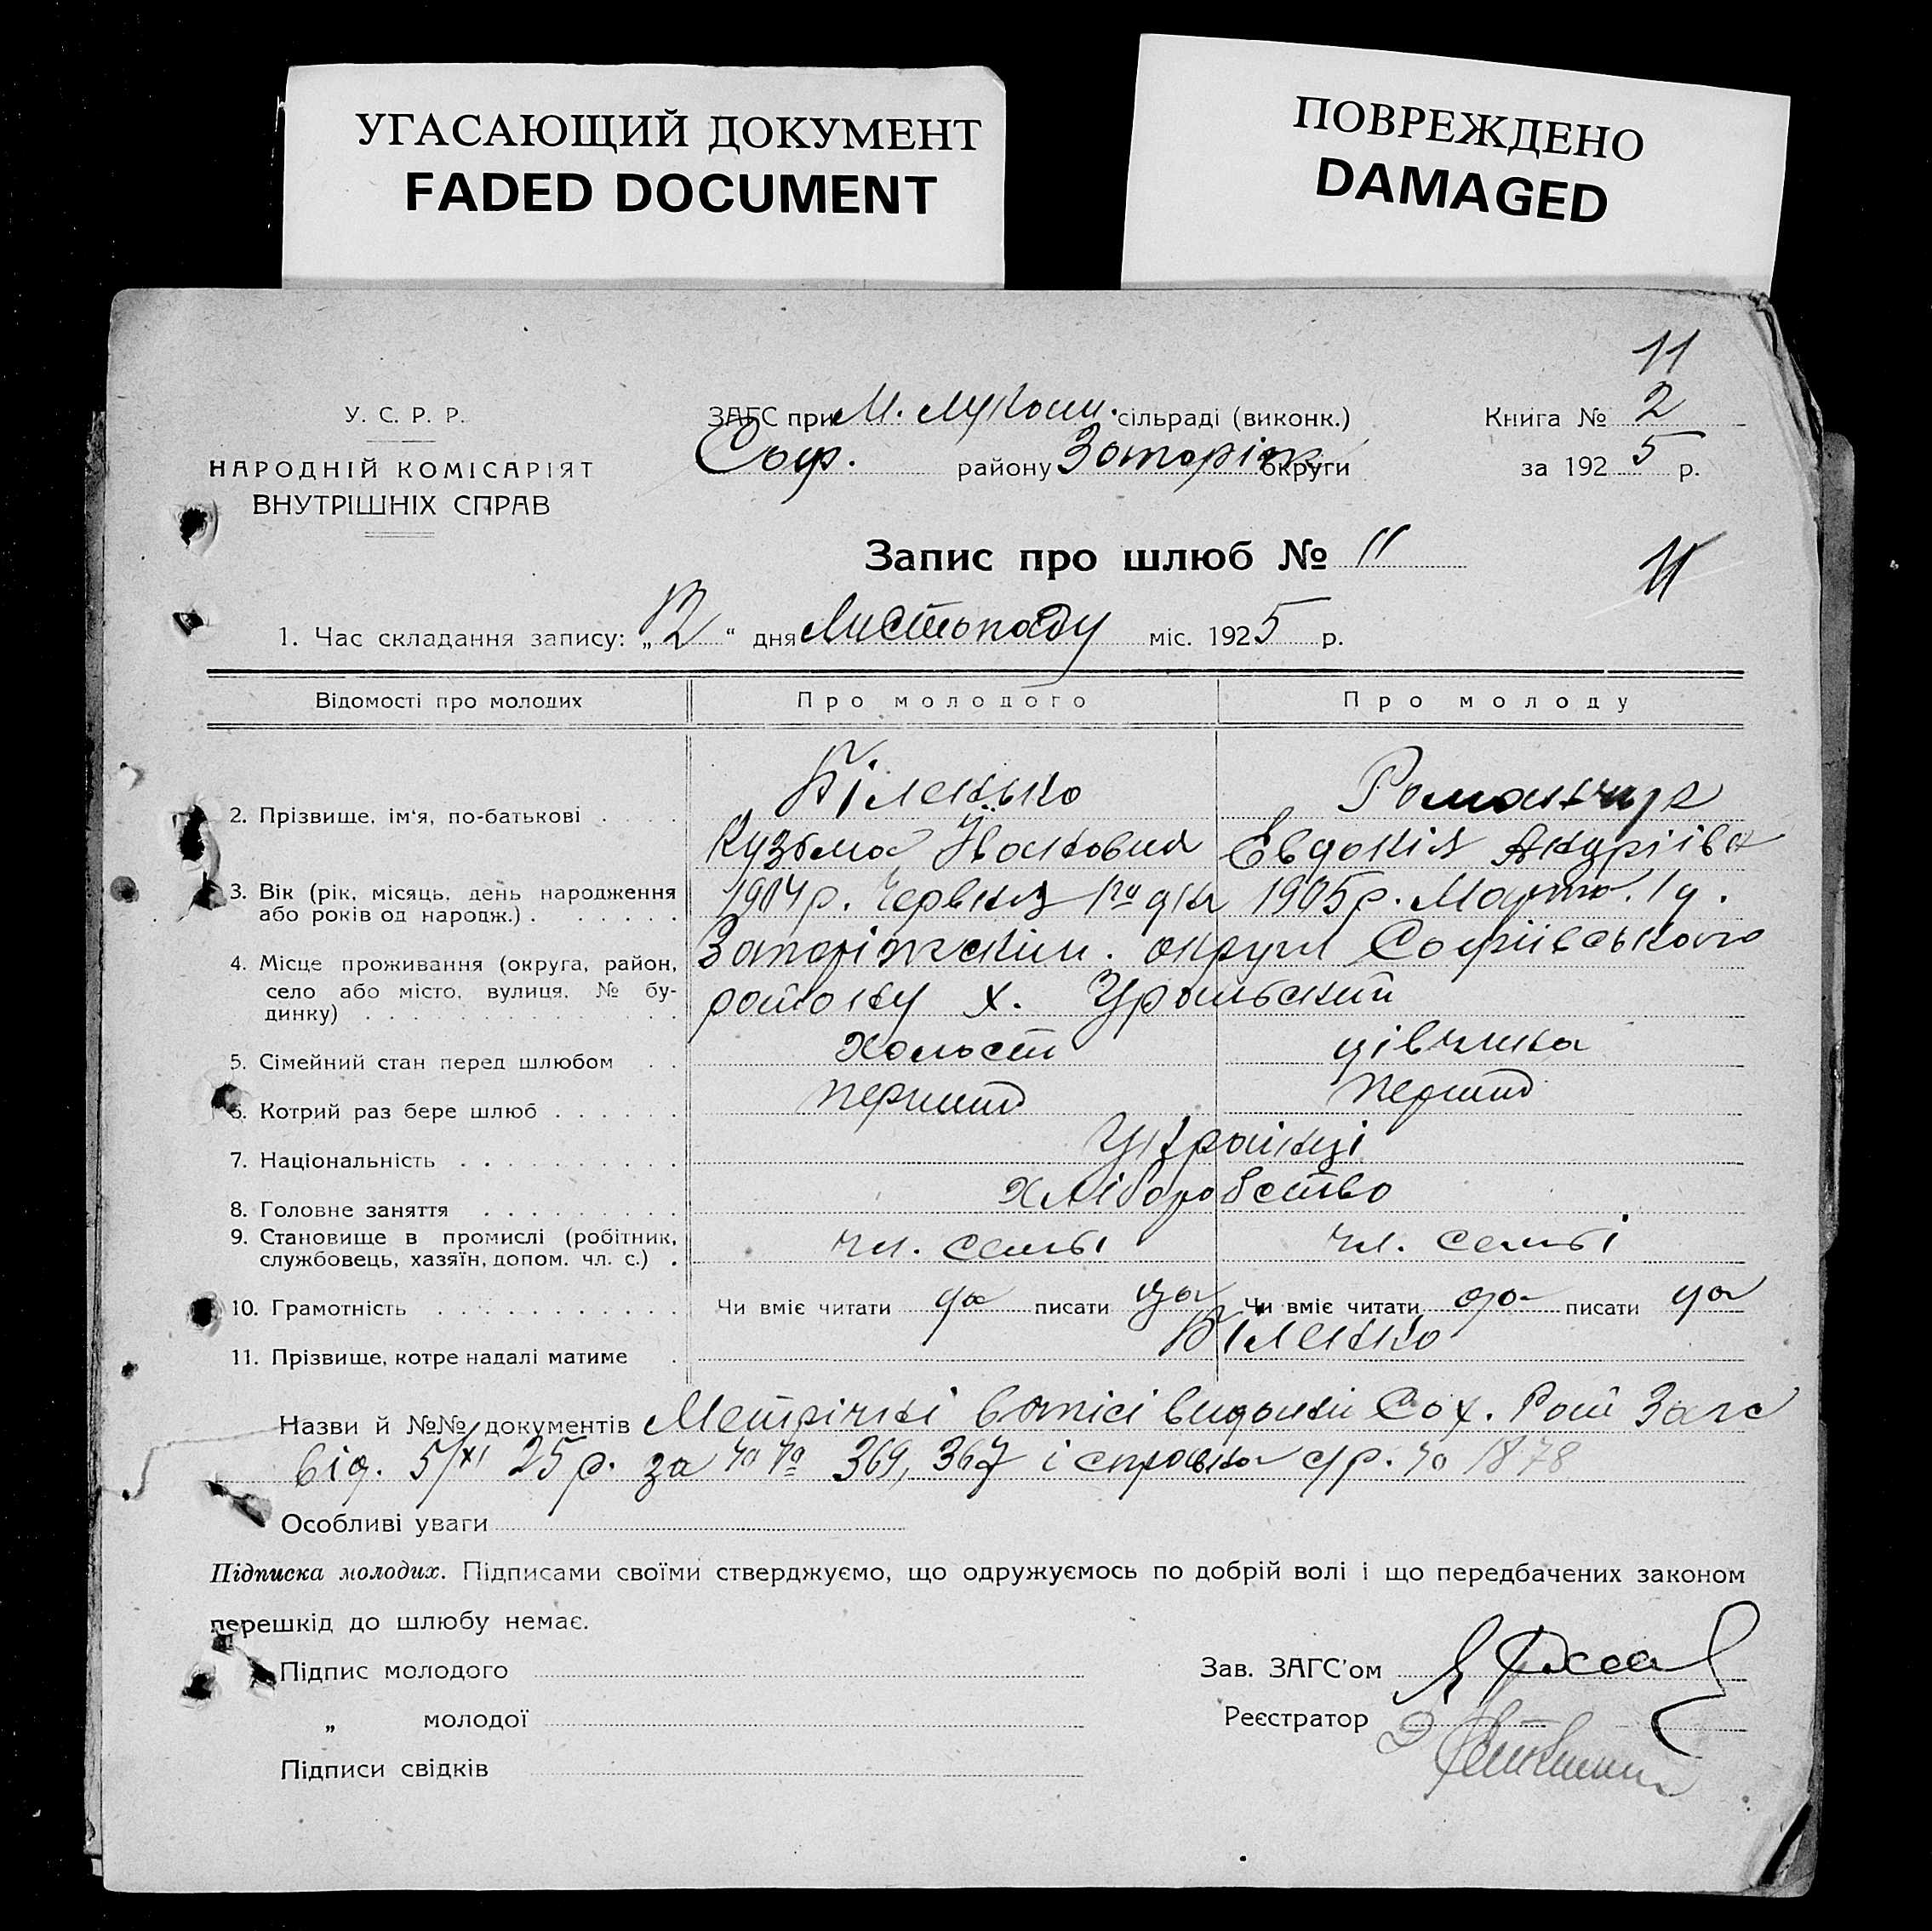 УГАСАЮЩИЙ ДОКУМЕНТ
FADED DOCUMENT
ПОВРЕЖДЕНО
DAMAGED
11
У. С. Р. Р.
НАРОДНІЙ КОМІСАРІЯТ
ВНУТРІШНІХ СПРАВ
ЗАГС при М. сільраді (виконк.)
Соф. району Запоріж округи
Книга № 2
за 1925 р.
Запис про шлюб № 11
11
1. Час складання запису: „12" дня Листопаду міс. 1925 р.
Відомості про молодих Про молодого Про молоду
Біленько Романчук
2. Прізвище, ім'я, по-батькові
Кузьма Іванович Евдокія
3. Вік (рік, місяць, день народження 1904 р. Червня 1го дня 1905 р. Марта 1 д.
або років од народж.)
4. Місце проживання (округа, район, Запоріжский округи Софиівського
село або місто, вулиця, № бу- району х. Уральский
динку)
5. Сімейний стан перед шлюбом Холост дівчина
6. Котрий раз бере шлюб перший перший
7. Національність Українці
8. Головне заняття хліборобство
9. Становище в промислі (робітник, чл. семьі чл. семьі
службовець, хазяїн, допом. чл. с.)
10. Грамотність Чи вміє читати да писати да Чи вміє читати да писати да
11. Прізвище, котре надалі матиме Біленко
Назви й №№ документів Метрічні виписі видані Соф. Рай Загс
від. 5/XI 25 р. за №№ 369, 367 і справка с/р. № 1878
Особливі уваги
Підписка молодих. Підписами своїми стверджуємо, що одружуємось по добрій волі і що передбачених законом
перешкід до шлюбу немає.
Підпис молодого
„ молодої
Підписи свідків
Зав. ЗАГС'ом
Реєстратор